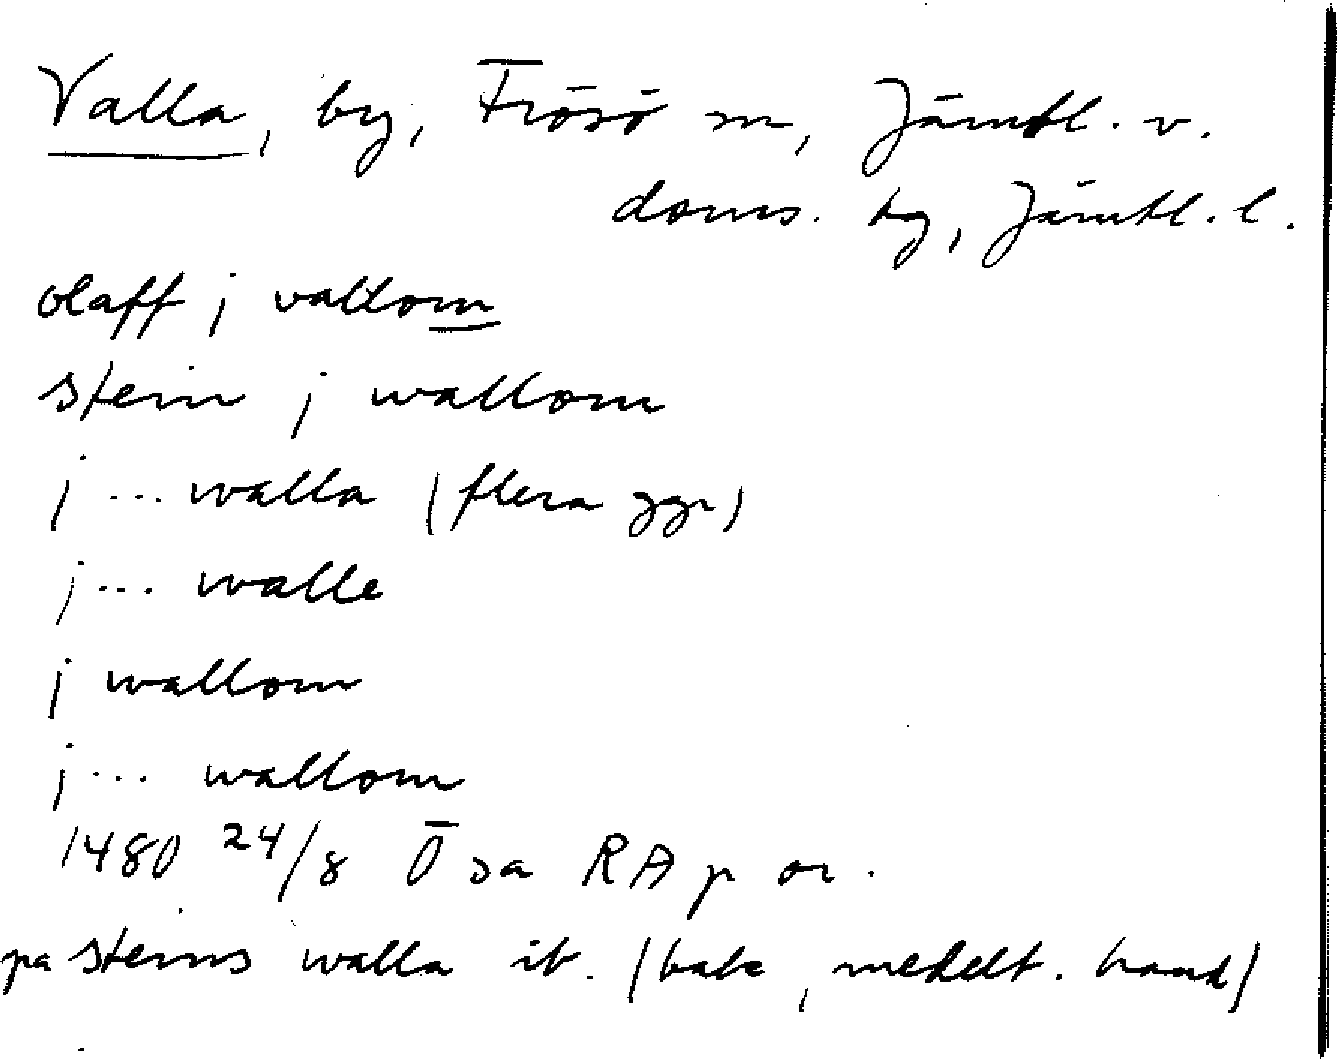 Valla, by, Frösö sn, Jämtl. v.
doms. hg, Jämtl. l.
olaff j vallom
stein j wallom
j ... walla (flera ggr)
j ... walle
j wallom
j ... wallom
1480 24/8 Ösa RA p or.
pa steins walla ib. (baks, medelt. hand)